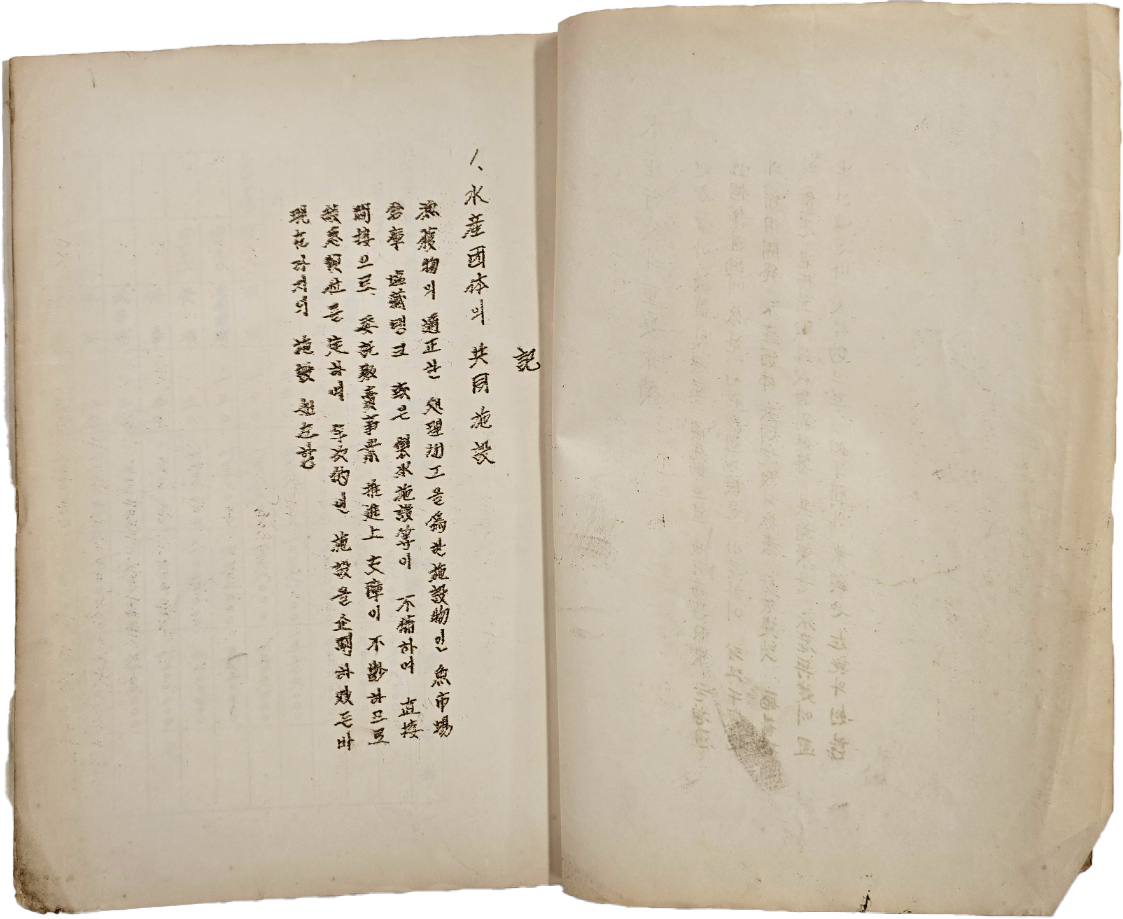 記
1、水産団体의 共同施設
漁獲物의 適正한 処理加工을 爲한 施設物인 魚市場
倉庫 塩蔵탱크 或은 製氷施設等이 不備하여 直接
間接으로 委託販賣事業 推進上 支障이 不尠하므로
緩急順位를 定하여 年次的인 施設을 企劃하였든바
現在까지의 施設 如左함